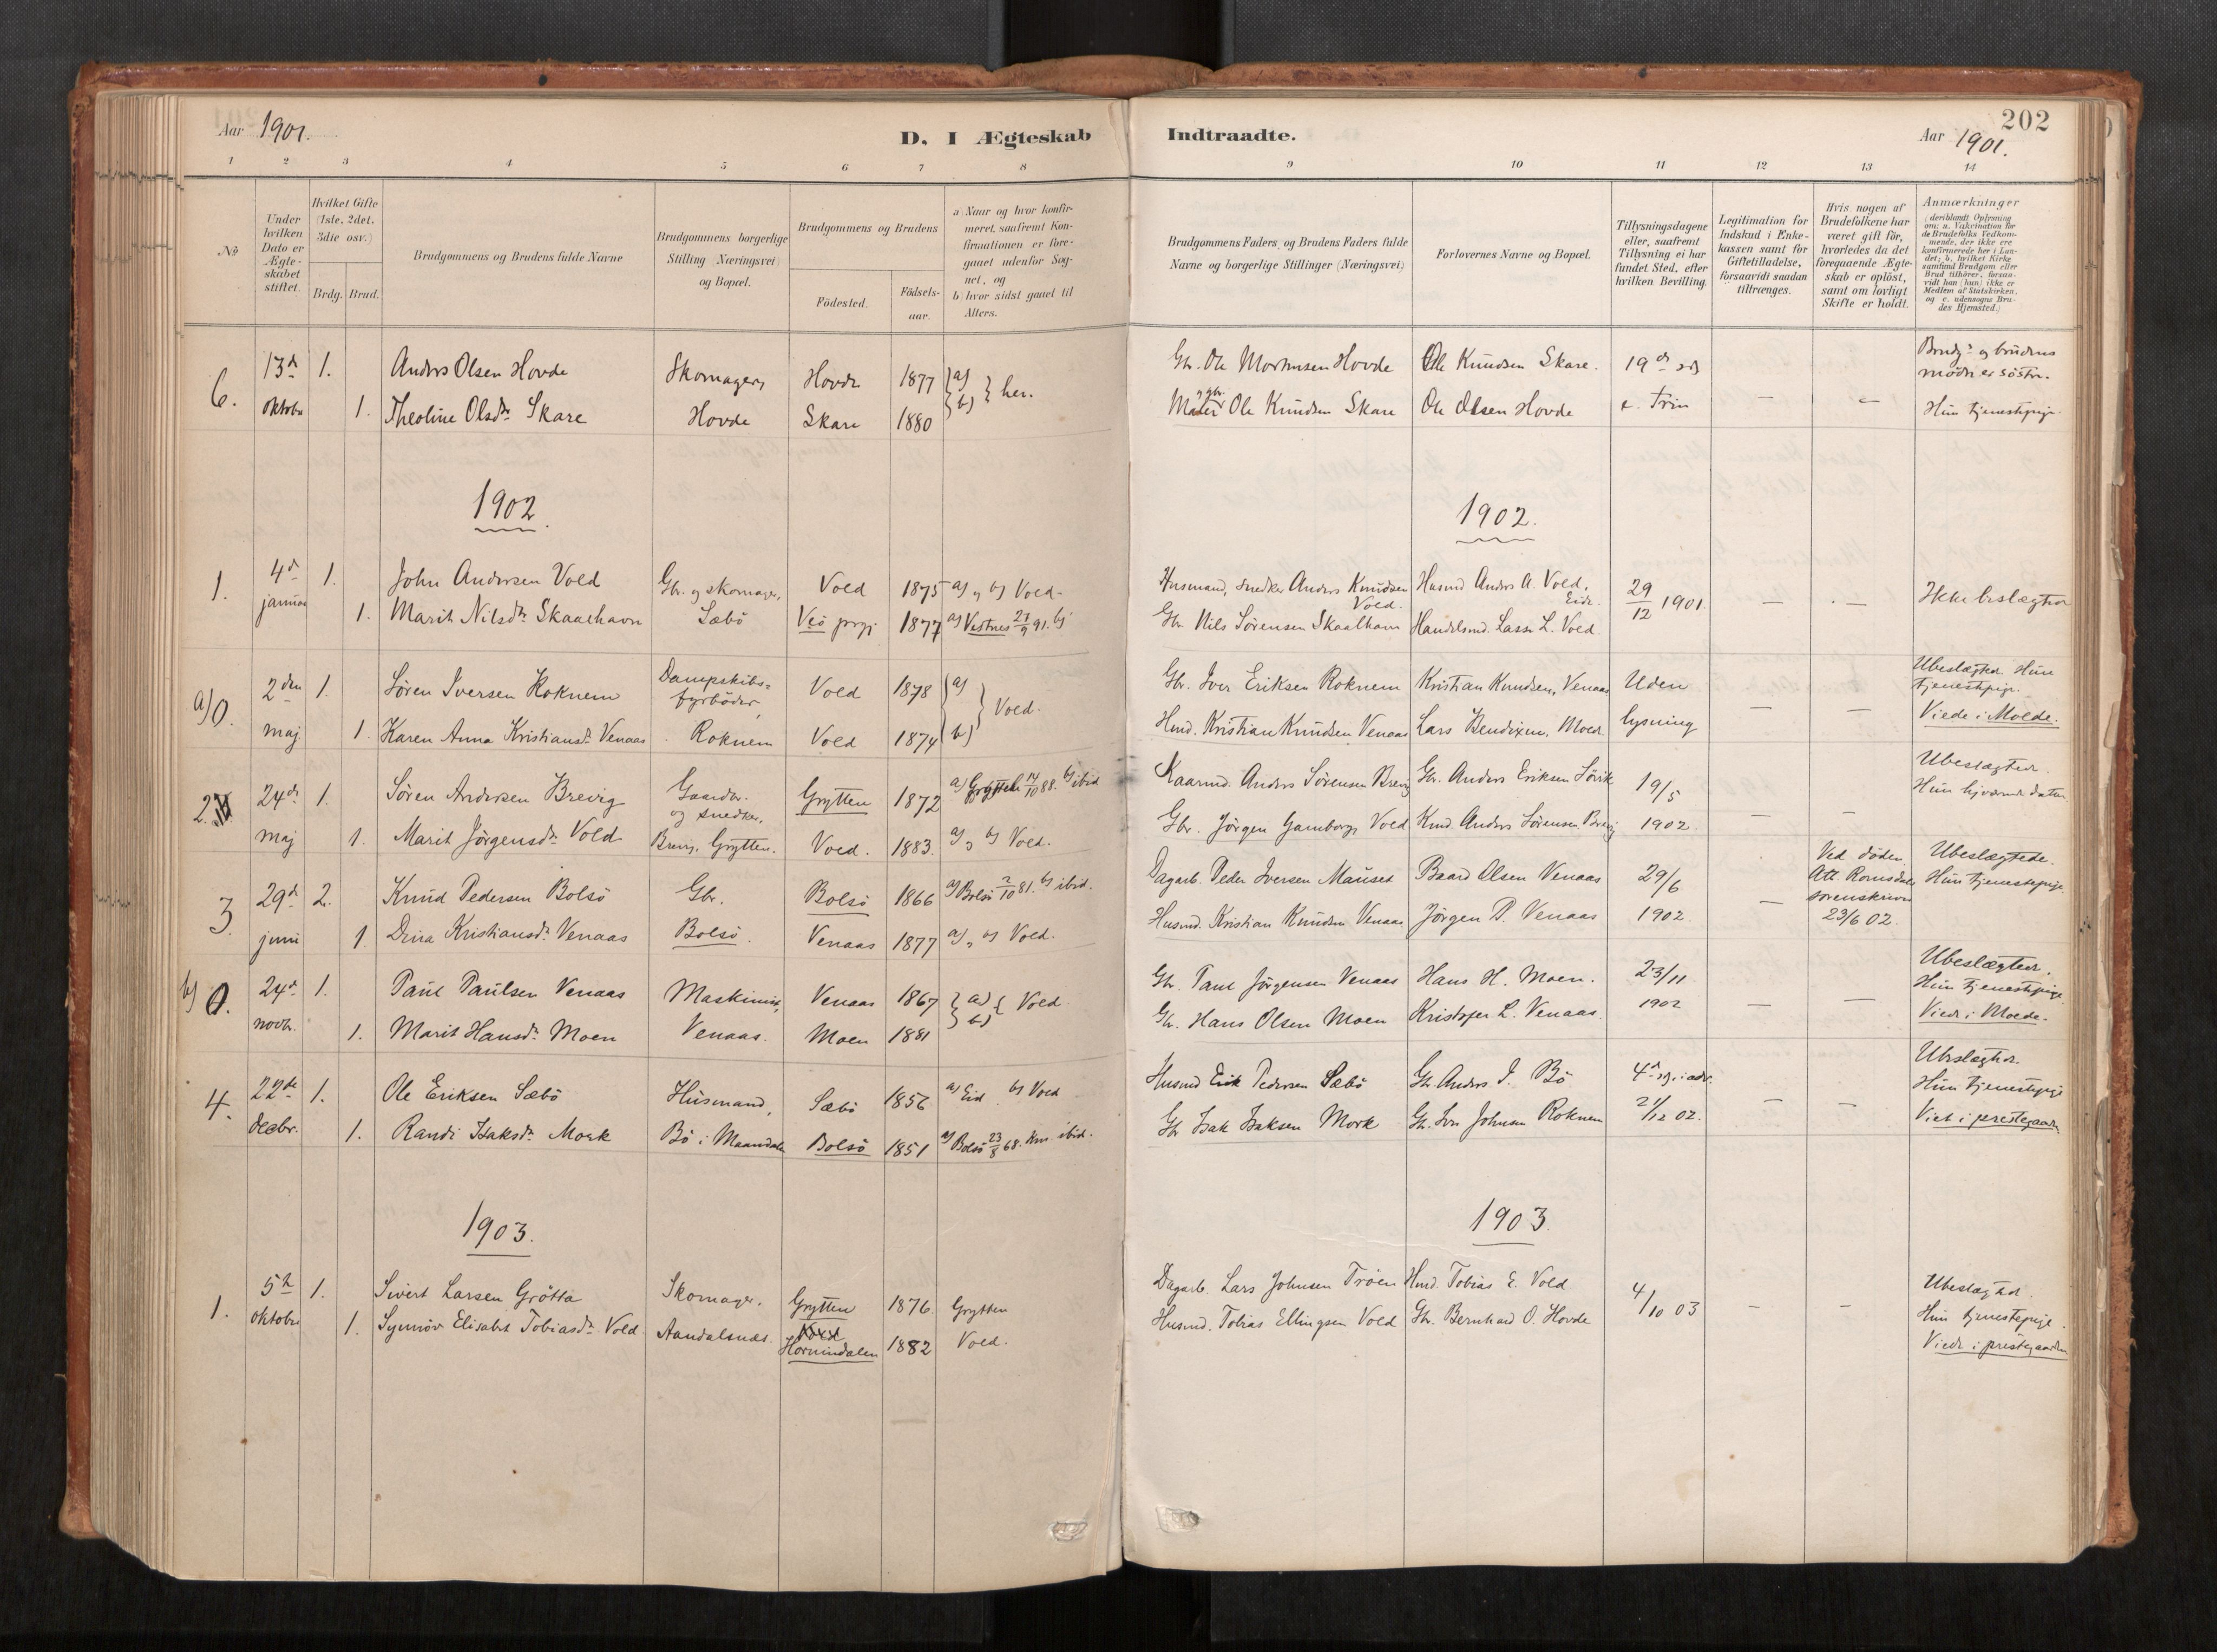 202
Aar 1901.
D. I Ægteskab Indtraadte.
Aar 1901.
1 2 3 4 5 6 7 8 9 10 11 12 13 14
№
Under hvilken Dato er Ægteskabet stiftet.
Hvilket Gifte (1ste, 2det, 3die osv.)
Brdg. Brud.
Brudgommens og Brudens fulde Navne
Brudgommens borgerlige Stilling (Næringsvei) og Bopæl.
Brudgommens og Brudens
Födested. Födselsaar.
a) Naar og hvor konfirmeret, saafremt Konfirmationen er foregaaet udenfor Sognet, og
b) hvor sidst gaaet til Alters.
Brudgommens Faders og Brudens Faders fulde Navne og borgerlige Stillinger (Næringsvei)
Forlovernes Navne og Bopæl.
Tillysningsdagene eller, saafremt Tillysning ei har fundet Sted, efter hvilken Bevilling.
Legitimation for Indskud i Enkekassen samt for Giftetilladelse, forsaavidt saadan tiltrænges.
Hvis nogen af Brudefolkene har været gift för, hvorledes da det foregaaende Ægteskab er oplöst, samt om lovligt Skifte er holdt.
Anmærkninger (deriblandt Oplysning om: a. Vakcination for de Brudefolks Vedkommende, der ikke ere konfirmerede her i Landet; b. hvilket Kirkesamfund Brudgom eller Brud tilhörer, forsaavidt han (hun) ikke er Medlem af Statskirken, og c. udensogns Brudes Hjemsted.)
6. 13de 1. Anders Olsen Hovde Skomager, Hovde 1877 a) b) her. Gbr. Ole Mortensen Hovde Ole Knudsen Skare. 19de Brudg.s og brudens mødre er søstre.
oktober 1. Theoline Olsdr. Skare Hovde Skare 1880 Ole Knudsen Skare Ole Olsen Hovde e. Trin — — Hun tjenestepige
1902. 1902.
1. 4de 1. John Andersen Vold Gbr. og skomager, Vold 1875 a) b) Vold. Husmand, snedker Anders Knudsen Vold. Husmd Anders A. Vold, Eide. 29/12 1901. — — Ikke beslægtede
januar 1. Marit Nilsdr. Skaalhavn Sæbö Veö prgj 1877 a) Vestnes 27/9 91. b) Gbr Nils Sörensen Skaalhavn Handelsmd. Lasse L. Vold
a) 0. 2den 1. Sören Iversen Roknem Dampskibsfyrböder, Vold 1878 a) b) Vold. Gbr. Iver Eriksen Roknem Kristian Knudsen, Venaas Uden Ubeslægtede. Hun tjenestepige.
maj 1. Karen Anna Kristiansdr. Venaas Roknem Vold 1874 Husmd. Kristian Knudsen Venaas Lars Bendixen, Molde lysning — — Viede i Molde.
2. 24de 1. Sören Andersen Brevig Gaardbr. og snedker, Grytten 1872 a) Grytten 14/10 88. b) ibid Kaarmd. Anders Sörensen Brevig Gbr. Anders Eriksen Sörik 19/5 Ubeslægtede.
maj 1. Marit Jörgensdr. Vold Brevig, Grytten. Vold. 1883. a), b) Vold. Gbr. Jörgen Gamborg Vold Kmd. Anders Sörensen Brevig 1902. — — Hun hjemmeværende datter
3 29de 2. Knud Pedersen Bolsö Gbr. Bolsö 1866 a) Bolsö 2/10 81. b) ibid. Dagarb. Peder Iversen Mauset Baard Olsen Venaas 29/6 Ved döden. Att. Romsdals sorenskriver 23/6 02. Ubeslægtede. Hun tjenestepige.
juni 1 Dina Kristiansdr. Venaas Bolsö. Venaas 1877 a), b) Vold. Husmd. Kristian Knudsen Venaas Jörgen P. Venaas 1902. —
b) 0. 24de 1. Paul Paulsen Venaas Maskinist, Venaas 1867 a) b) Vold Gbr. Paul Jörgensen Venaas Hans H. Moen. 23/11 Ubeslægtede. Hun tjenestepige.
novbr. 1. Marit Hansdr. Moen Venaas. Moen 1881 Gbr. Hans Olsen Moen Kristofer L. Venaas. 1902 — — Viede i Molde.
4. 22de 1. Ole Eriksen Sæbö Husmand, Sæbö 1856 a) Eid b) Vold Husmd Erik Pedersen Sæbö Gbr. Anders I. Bö 4de s. i adv. Ubeslægtede. Hun tjenestepige
decbr. 1. Randi Isaksdr. Mork Bö i Maandalen Bolsö 1851 a) Bolsö 23/8 68. Km. ibid. Gbr Isak Isaksen Mork Gbr. Iver Johnsen Roknem 21/12 02. — — Viet i prestegaarden
1903. 1903.
1. 5te 1. Sivert Larsen Grötta Skomager. Grytten 1876. Grytten Dagarb. Lars Johnsen Tröen Husmd. Tobias E. Vold 4/10 03 — — Ubeslægtede.
oktober 1. Synnöv Elisabet Tobiasdr. Vold Aandalsnæs. Vold Hornindalen 1882 Vold. Husmd. Tobias Ellingsen Vold Gbr. Bernhard O. Hovde Hun tjenestepige.
Viede i prestegaarden